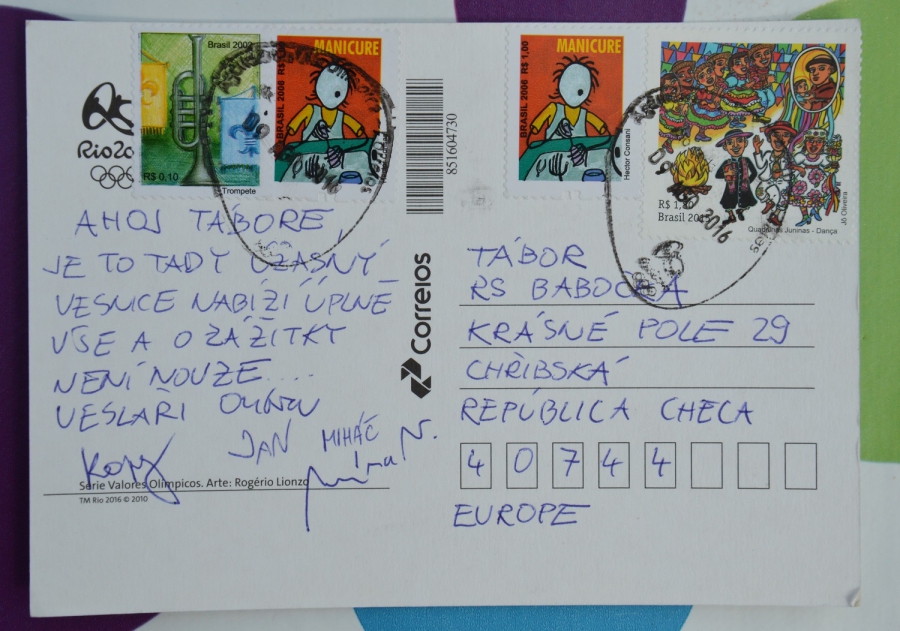 Brasil 2002
R$ 0,10
Trompete
MANICURE
BRASIL 2006 R$ 1,00
851604730
MANICURE
BRASIL 2006 R$ 1,00
Hector Consani
R$ 1,
Brasil 20
Quadrilhas Juninas - Dança
Jô Oliveira
2016
Rio20
AHOJ TÁBORE,
JE TO TADY ÚŽASNÝ
VESNICE NABÍZÍ ÚPLNĚ
VŠE A O ZÁŽITKY
NENÍ NOUZE....
VESLAŘI
JAN MIHÁČ
Série Valores Olímpicos. Arte: Rogério Lionzo
TM Rio 2016 © 2010
Correios
TÁBOR
RS BABOČKA
KRÁSNÉ POLE 29
CHŘIBSKÁ
REPÚBLICA CHECA
40744
EUROPE